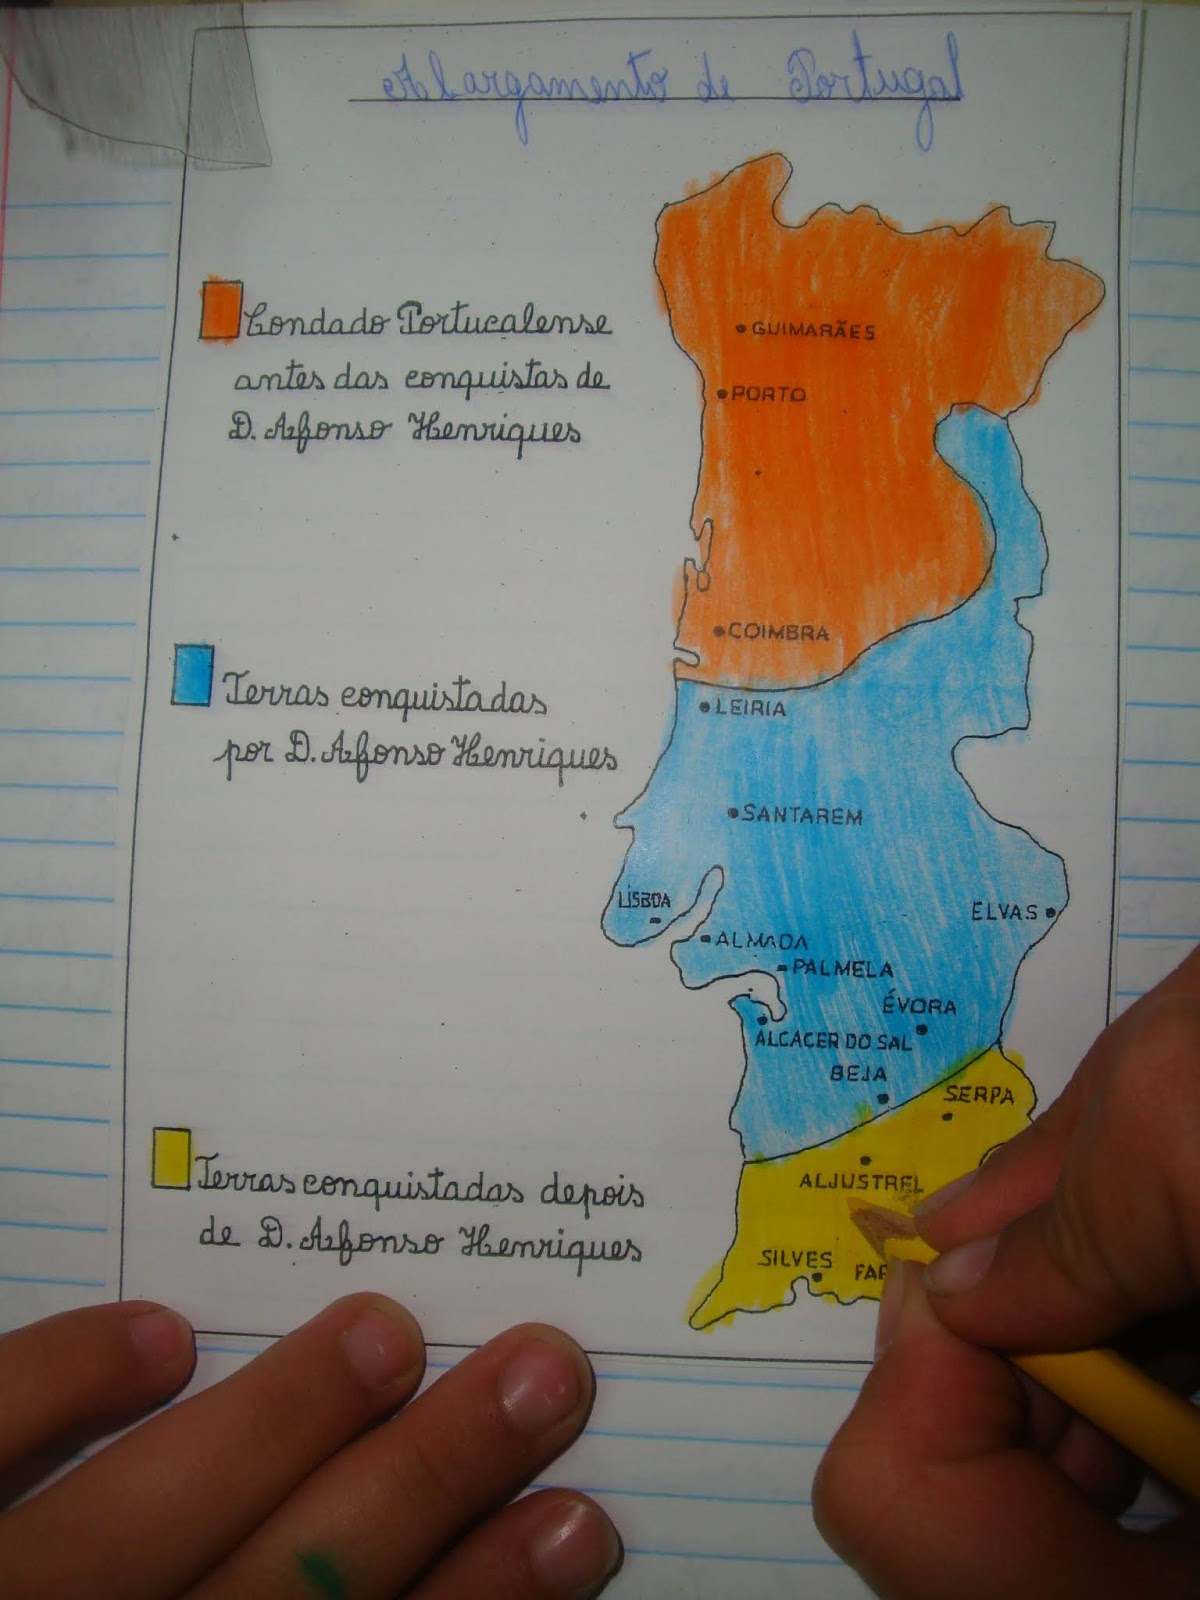 Alargamento de Portugal
Condado Portucalense
antes das conquistas de
D. Afonso Henriques
Terras conquistadas
por D. Afonso Henriques
Terras conquistadas depois
de D. Afonso Henriques
GUIMARÃES
PORTO
COIMBRA
LEIRIA
SANTAREM
LISBOA
ELVAS
ALMADA
PALMELA
ÉVORA
ALCACER DO SAL
BEJA
SERPA
ALJUSTREL
SILVES